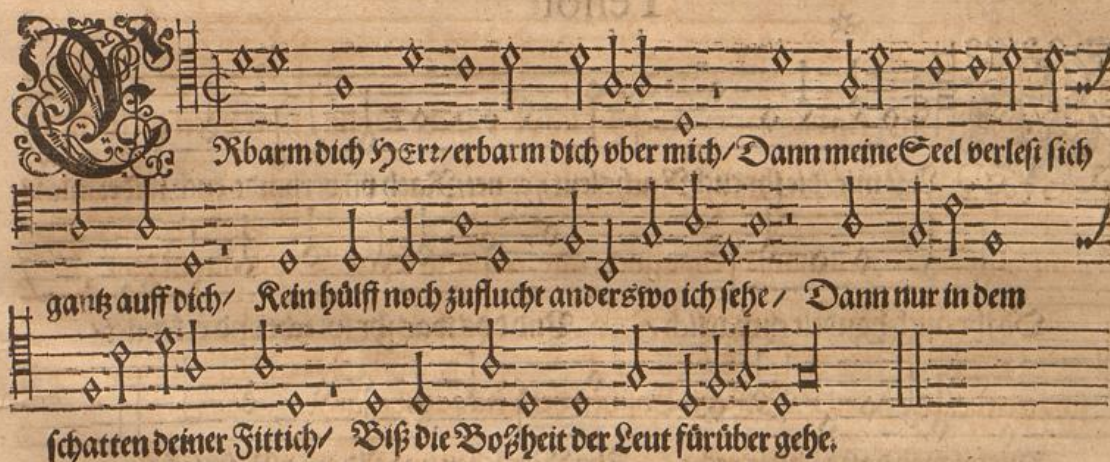 ERbarm dich HErr/erbarm dich vber mich/Dann meine Seel verlest sich
gantz auff dich/ Kein hülff noch zuflucht anderswo ich sehe/ Dann nur in dem
schatten deiner Fittich/ Biß die Boßheit der Leut fürüber gehe.